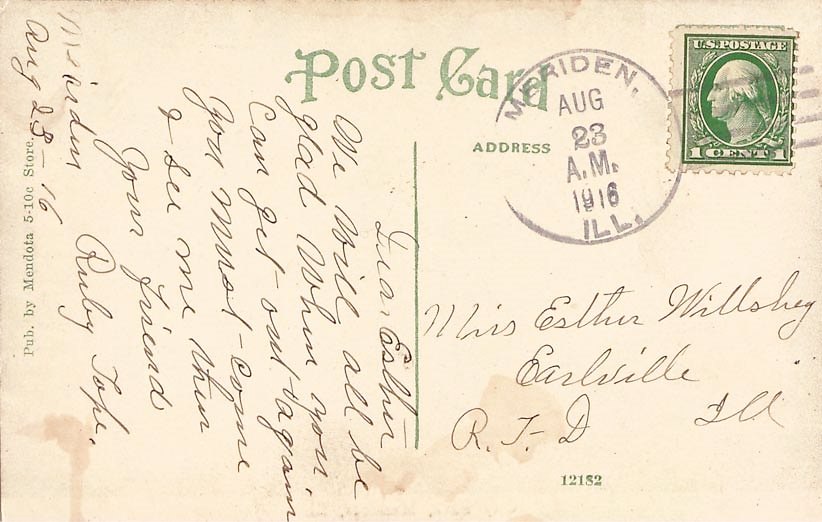 Post Card
ADDRESS
MERIDEN,
AUG
23
A.M.
1916
ILL.
U.S. POSTAGE
1 CENT 1
Dear Esther
We Will all be
glad When you
Can get out again
you Must come
& see me then
Your friend
Ruby Tope.
Meirden
Aug 23-16
Miss Esther Willshey
Earlville
R.F.D Ill
12182
Pub. by Mendota 5-10c Store.